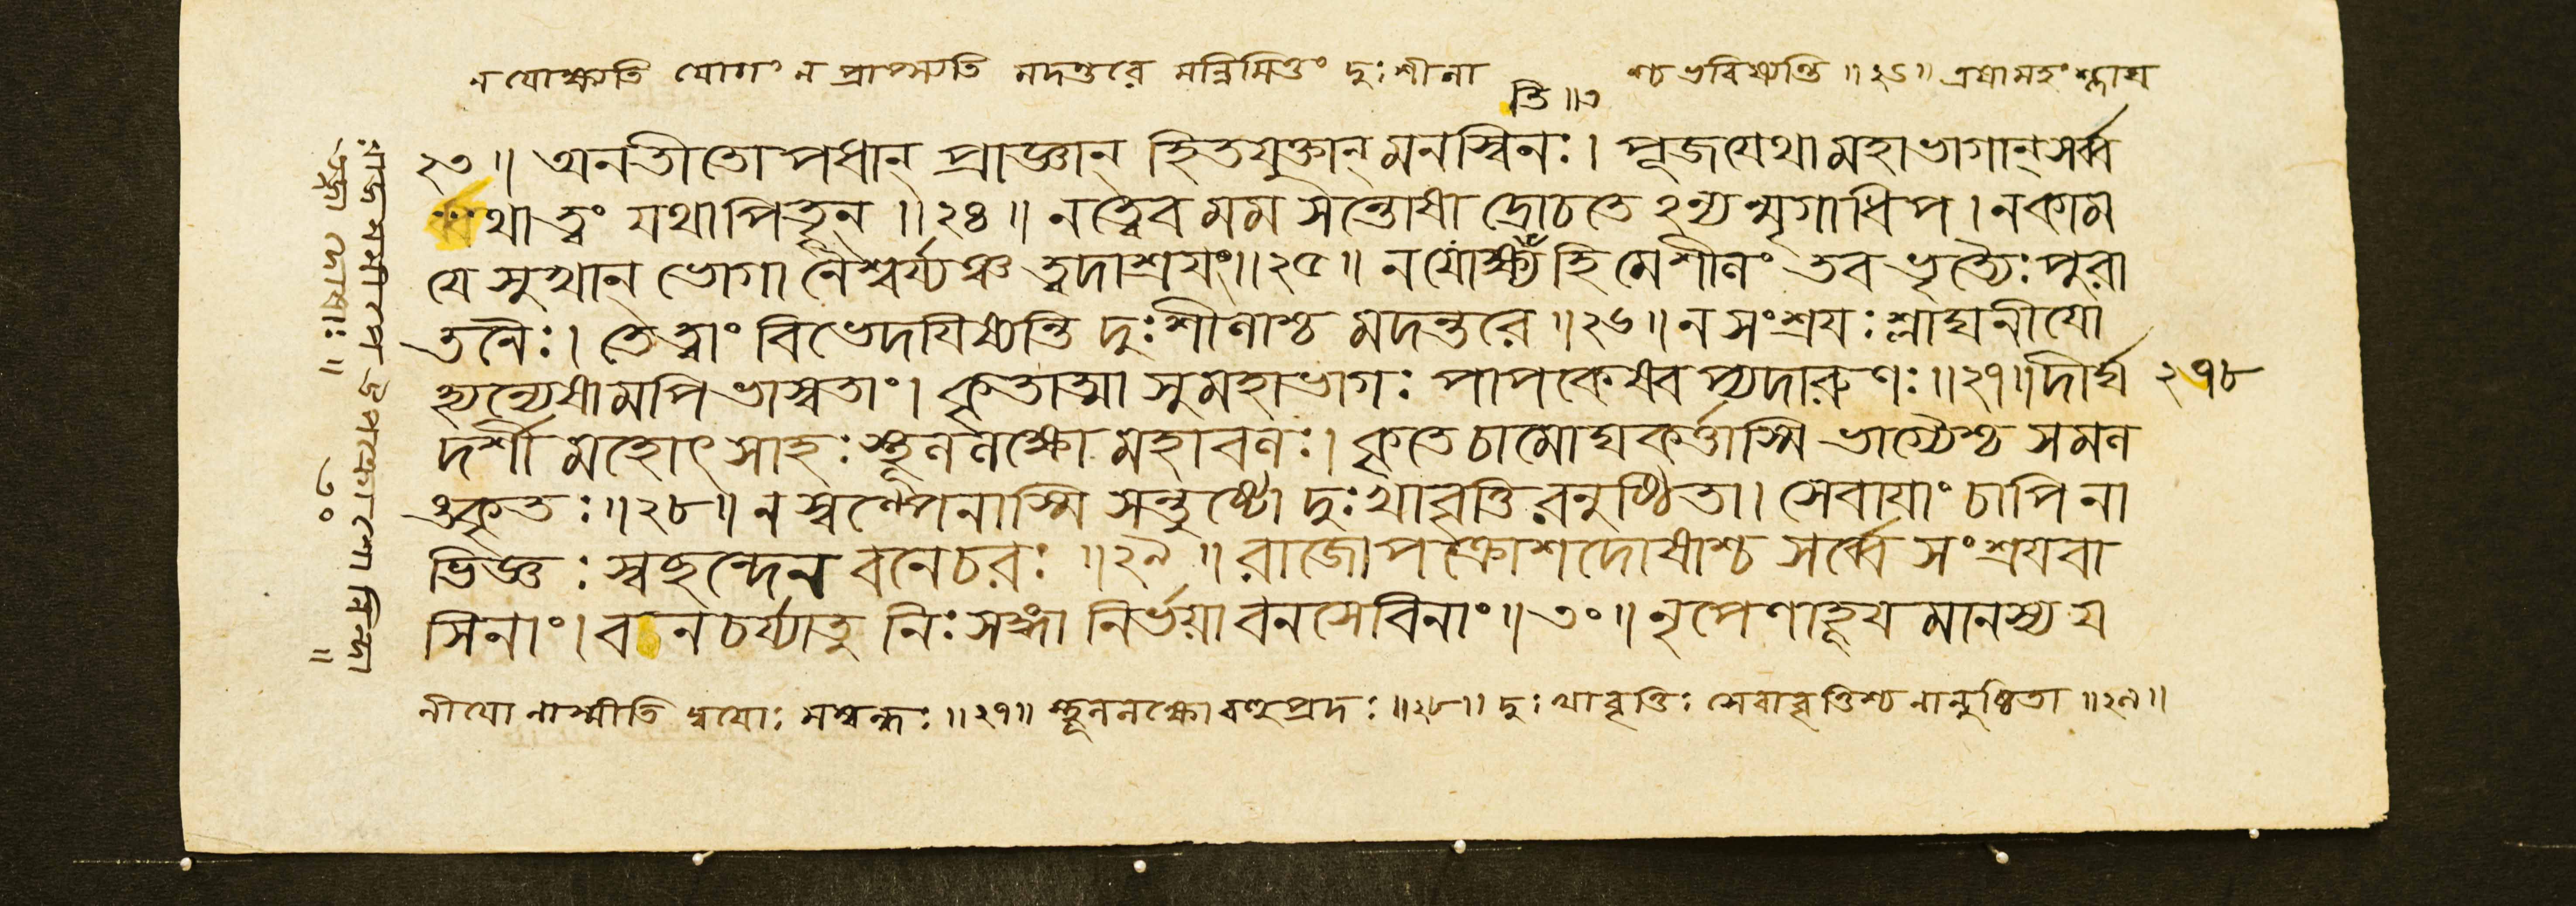 ন যোক্ষ্যতি যোগং ন প্রাপ্স্যতি মদন্তরে মন্নিমিত্তং দুঃশীলা শ্চ ভবিষ্যন্তি ॥ ২৬ ॥ এষামহং শ্লাঘ
ন্তি ॥৩
২৩ ॥ অনতীতোপধান্ প্রাজ্ঞান্ হিতযুক্তান্ মনস্বিনঃ । পূজযেথা মহাভাগান্ সর্ব্ব
যথা ত্বং যথা পিতৄন ॥ ২৪ ॥ নত্বেব মম সন্তোষা দ্রোচতে ২ন্যন্মৃগাধিপ । ন কাম
যে সুখান্ ভোগা নৈশ্বর্য্যঞ্চ ত্বদাশ্রযং ॥ ২৫ ॥ ন যোক্ষ্যঁ হি মে শীলং তব ভৃত্যৈঃ পুরা
তনৈঃ । তে ত্বাং বিভেদযিষ্যন্তি দুঃশীলাশ্চ মদন্তরে ॥ ২৬ ॥ ন সংশ্রযঃ শ্লাঘনীযো
হ্যন্যেষামপি ভাস্বতাং । কৃতাত্মা সুমহাভাগঃ পাপকেষ্বপ্যদারুণঃ ॥ ২৭ ॥ দীর্ঘ ২৭৮
দর্শী মহোৎসাহঃ স্থূললক্ষো মহাবলঃ । কৃতে চামোঘকর্ত্তাস্মি ভাগ্যৈশ্চ সমল
ঙ্কৃতঃ ॥ ২৮ ॥ ন স্বল্পেনাস্মি সন্তুষ্টো দুঃখাবৃত্তিরনুষ্ঠিতা । সেবাযাং চাপি না
ভিজ্ঞঃ স্বছন্দেন বনেচরঃ ॥ ২৯ ॥ রাজোপক্রোশদোষাশ্চ সর্ব্বে সংশ্রযবা
সিনাং । বনচর্য্যাতু নিঃসঙ্গা নির্ভয়া বনসেবিনাং ॥ ৩০ ॥ নৃপেণাহূযমানস্য য
নীযো নাস্মীতি দ্বযোঃ সম্বন্ধঃ ॥ ২৭ ॥ স্থূললক্ষো বহুপ্রদঃ ॥ ২৮ ॥ দুঃখাবৃত্তিঃ সেবাবৃত্তিশ্চ নানুষ্ঠিতা ॥ ২৯ ॥